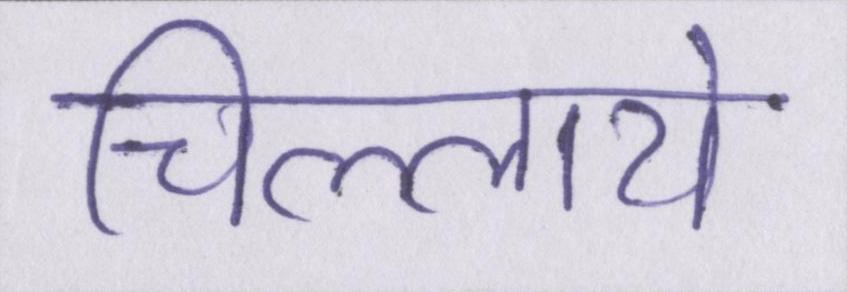 चिल्लाये